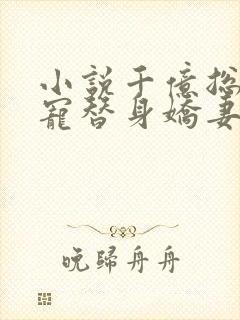 小説千億总
寵替身嬌妻
晚歸舟舟